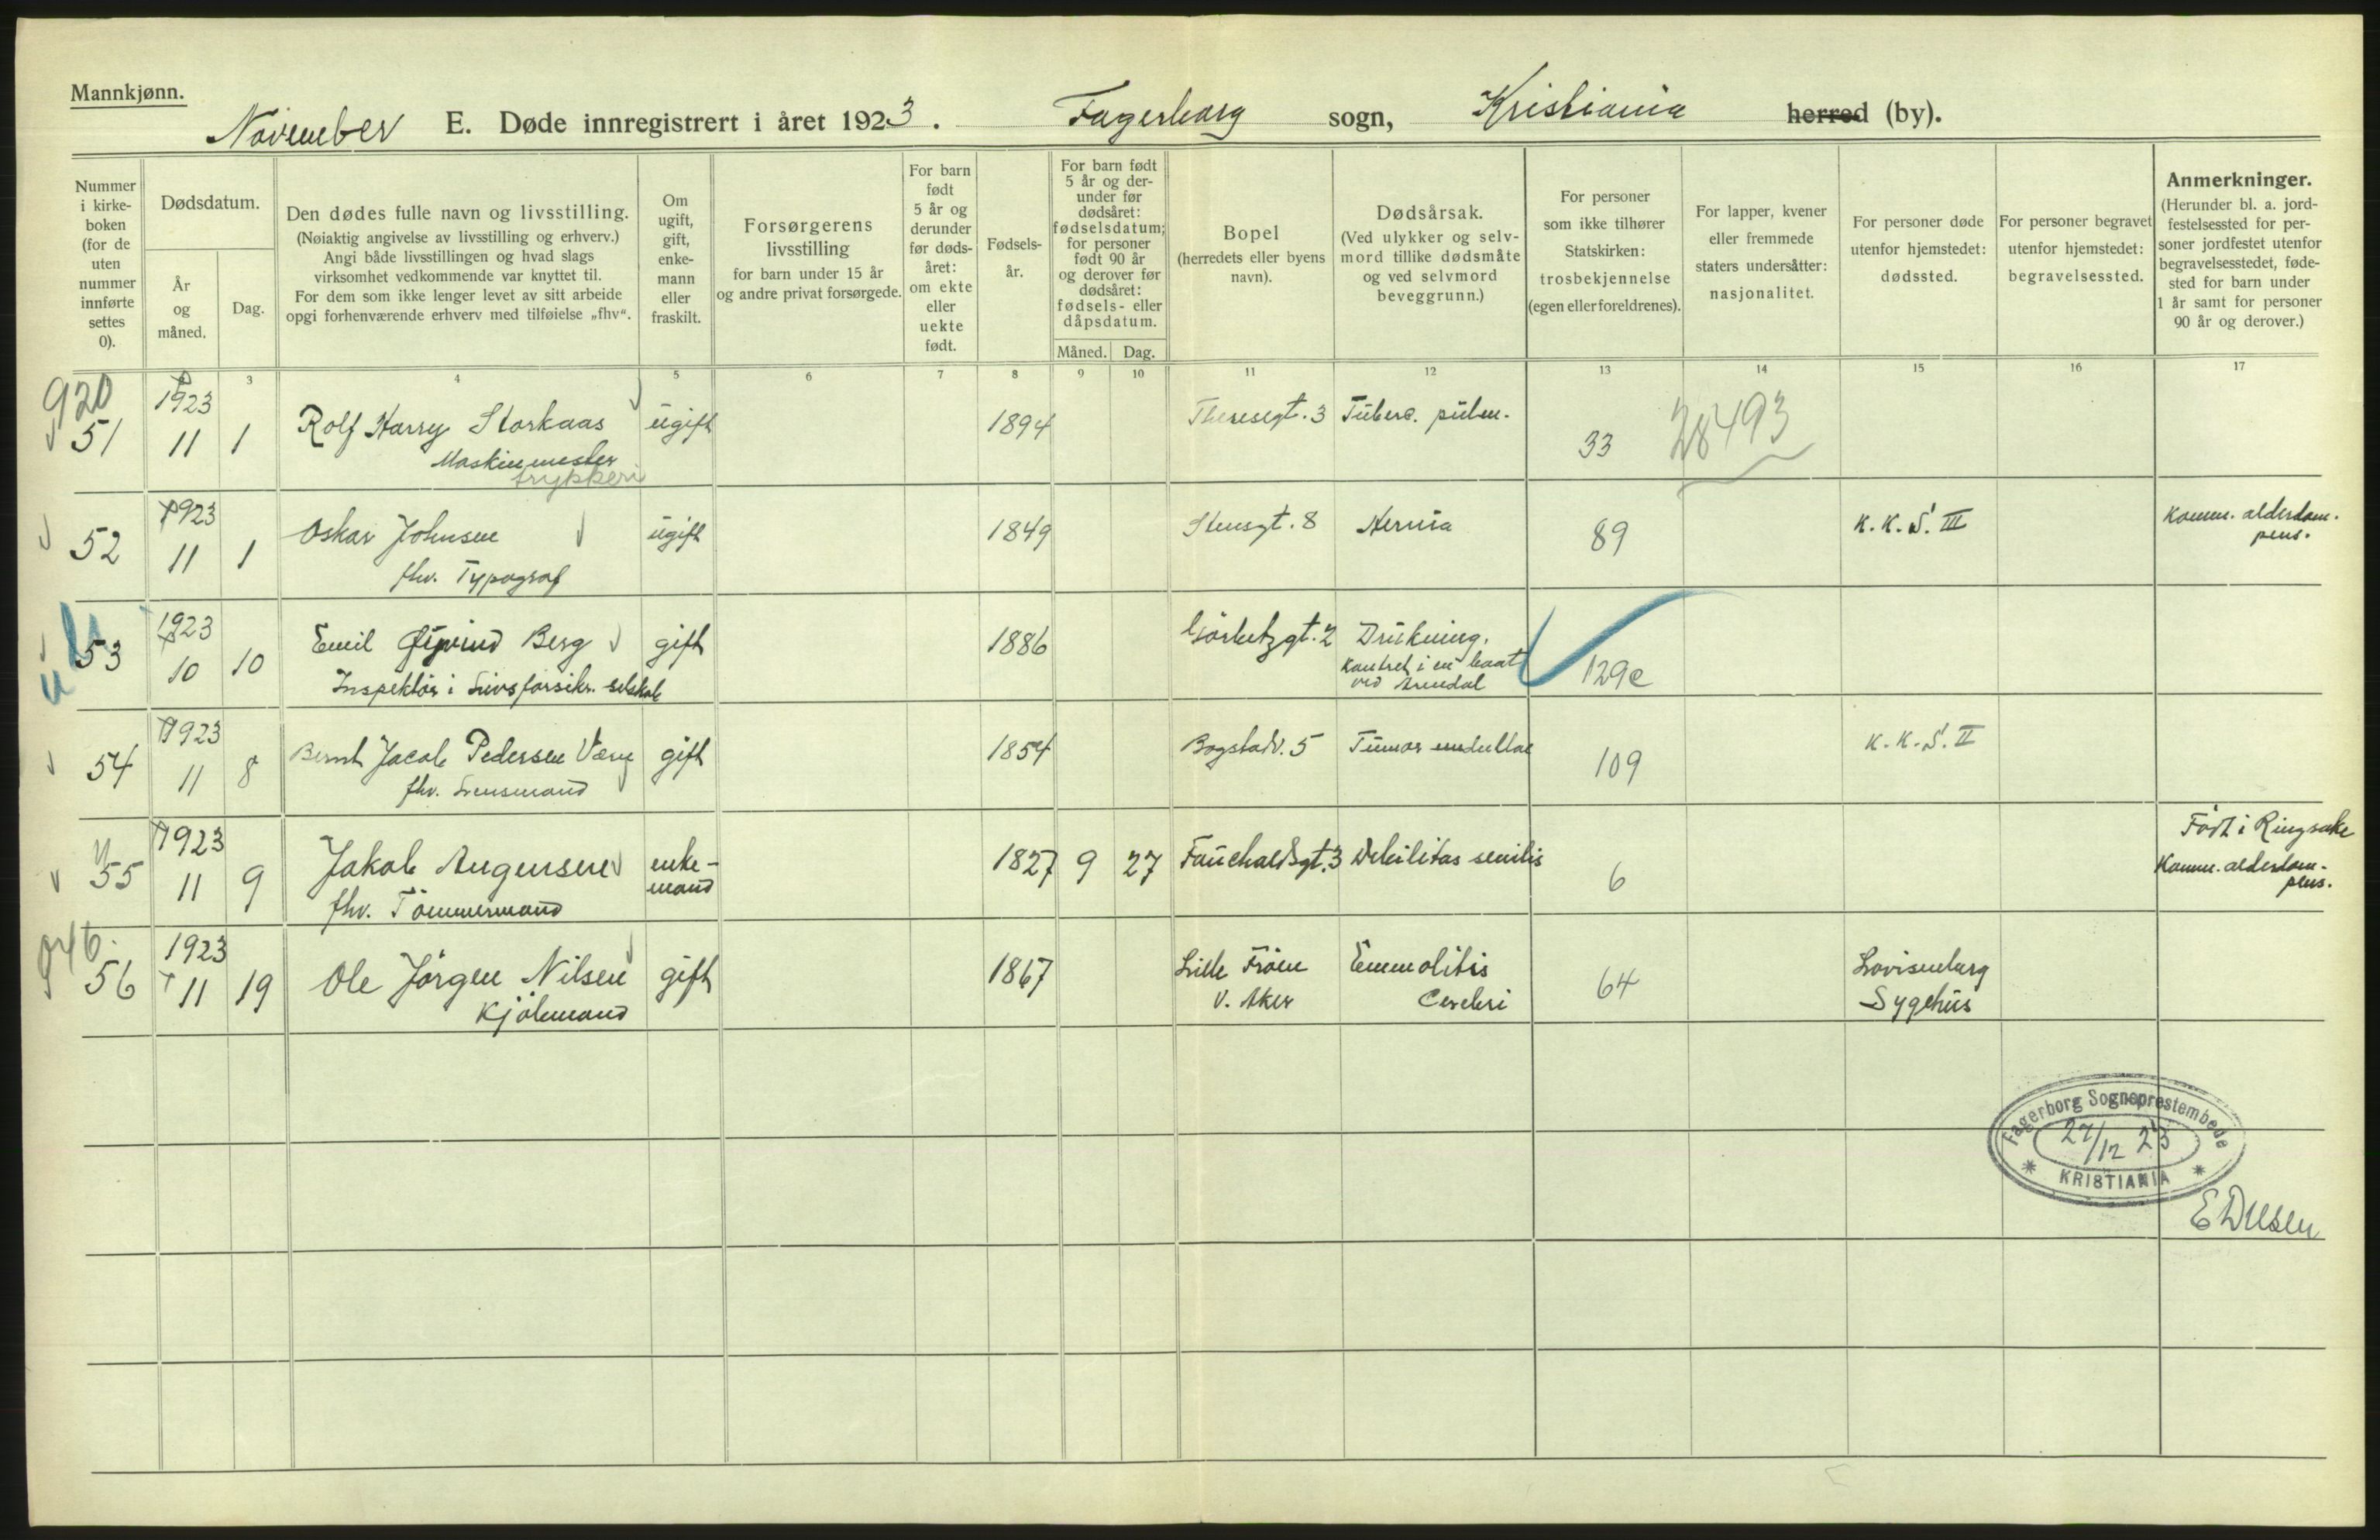 Mannkjønn.
November E. Døde innregistrert i året 1923. Fagerborg sogn, Kristiania herred (by).
Nummer i kirke- boken (for de uten nummer innførte settes 0).
Dødsdatum.
År og måned.
Dag.
Den dødes fulle navn og livsstilling.
(Nøiaktig angivelse av livsstilling og erhverv.)
Angi både livsstillingen og hvad slags
virksomhet vedkommende var knyttet til.
For dem som ikke lenger levet av sitt arbeide
opgi forhenværende erhverv med tilføielse „fhv“.
Om ugift, gift, enke- mann eller fraskilt.
Forsørgerens
livsstilling
for barn under 15 år
og andre privat forsørgede.
For barn født 5 år og derunder før døds- året: om ekte eller uekte født.
Fødsels- år.
For barn født 5 år og der- under før dødsåret: fødselsdatum; for personer født 90 år og derover før dødsåret: fødsels- eller dåpsdatum.
Måned. Dag.
Bopel
(herredets eller byens
navn).
Dødsårsak.
(Ved ulykker og selv-
mord tillike dødsmåte
og ved selvmord
beveggrunn.)
For personer
som ikke tilhører
Statskirken:
trosbekjennelse
(egen eller foreldrenes).
For lapper, kvener
eller fremmede
staters undersåtter:
nasjonalitet.
For personer døde
utenfor hjemstedet:
dødssted.
For personer begravet
utenfor hjemstedet:
begravelsessted.
Anmerkninger.
(Herunder bl. a. jord-
festelsessted for per-
soner jordfestet utenfor
begravelsesstedet, føde-
sted for barn under
1 år samt for personer
90 år og derover.)
3 4 5 6 7 8 9 10 11 12 13 14 15 16 17
920
51 1923 11 1 Rolf Harry Storkaas ugift 1894 Theresegt. 3 Tuberc. pulm. 33 28493
Maskinmester
trykkeri
52 1923 11 1 Oskar Johnsen ugift 1849 Stensgt. 8 Hernia 89 K.K.S. III Komm. alderdom.
fhv. Typograf pens.
53 1923 10 10 Emil Øyvind Berg gift 1886 Görbitzgt. 2 Drukning.
Inspektör i Livsforsikr. selskab kantret i en baat
ved Arendal 129e
54 1923 11 8 Bernt Jacob Pedersen Værn gift 1854 Bogstadv. 5 Tumor medullae 109 K.K.S. II
fhv. Lensmand
55 1923 11 9 Jakob Augensen enke- mand 1827 9 27 Fauchaldsgt. 3 Debilitas senilis 6 Födt i Ringsake
fhv. Tömmermand Komm. alderdom-
pens.
946.
56 1923 11 19 Ole Jörgen Nilsen gift 1867 Lille Fröen Emmolitis 64 Lovisenberg
Kjölmand V. Aker Cerebri Sygehus
Fagerborg Sogneprestembede
27/12 23
KRISTIANIA